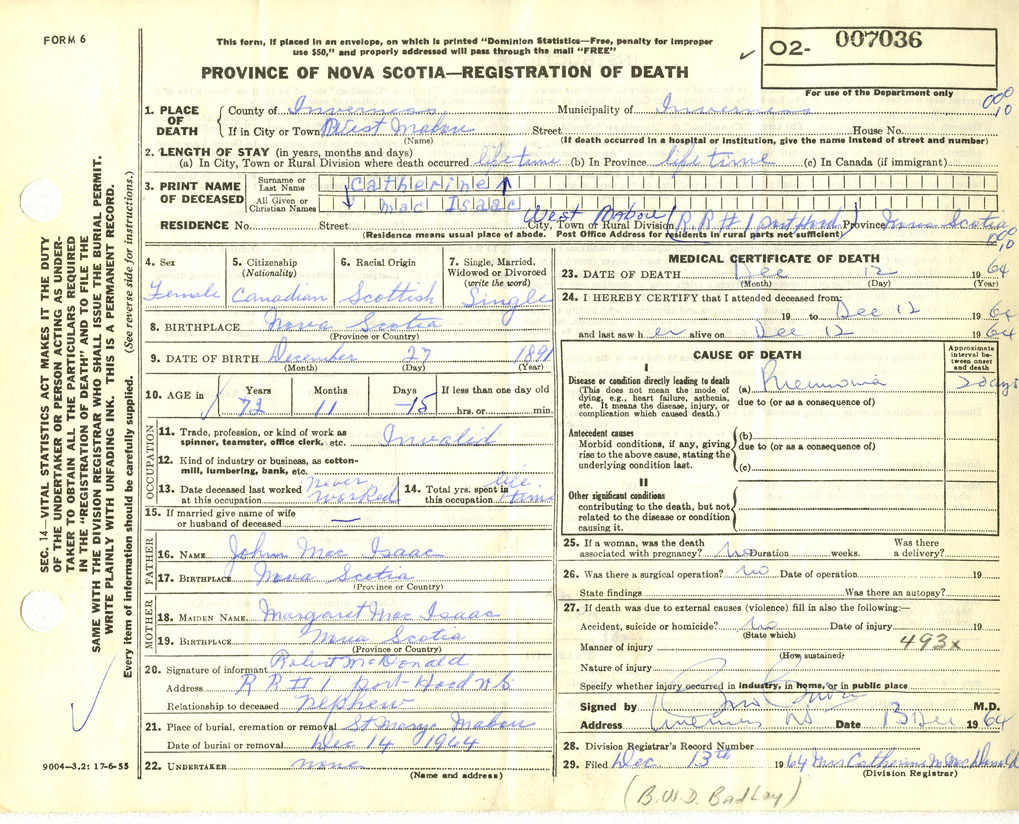 FORM 6
This form, if placed in an envelope, on which is printed "Dominion Statistics—Free, penalty for improper
use $50," and properly addressed will pass through the mail "FREE"
PROVINCE OF NOVA SCOTIA—REGISTRATION OF DEATH
02- 007036
For use of the Department only
1. PLACE OF DEATH County of Inverness Municipality of Inverness
If in City or Town West Mabou Street House No.
(Name) (If death occurred in a hospital or institution, give the name instead of street and number)
2. LENGTH OF STAY (in years, months and days)
(a) In City, Town or Rural Division where death occurred lifetime (b) In Province life time (c) In Canada (if immigrant)
3. PRINT NAME OF DECEASED Surname or Last Name Catherine
All Given or Christian Names Mac Isaac
RESIDENCE No. Street West Mabou City, Town or Rural Division (RR#1 Port Hood) Province Nova Scotia
(Residence means usual place of abode. Post Office Address for residents in rural parts not sufficient)
4. Sex Female
5. Citizenship (Nationality) Canadian
6. Racial Origin Scottish
7. Single, Married, Widowed or Divorced (write the word) Single
8. BIRTHPLACE Nova Scotia
(Province or Country)
9. DATE OF BIRTH December 27 1891
(Month) (Day) (Year)
10. AGE in Years 72 Months 11 Days 15 If less than one day old hrs. or min.
OCCUPATION
11. Trade, profession, or kind of work as spinner, teamster, office clerk, etc. Invalid
12. Kind of industry or business, as cotton-mill, lumbering, bank, etc.
13. Date deceased last worked at this occupation never worked
14. Total yrs. spent in this occupation life time
15. If married give name of wife or husband of deceased —
FATHER
16. NAME John Mac Isaac
17. BIRTHPLACE Nova Scotia
(Province or Country)
MOTHER
18. MAIDEN NAME Margaret Mac Isaac
19. BIRTHPLACE Nova Scotia
(Province or Country)
20. Signature of informant Robert McDonald
Address RR#1 Port-Hood NS
Relationship to deceased Nephew
21. Place of burial, cremation or removal St Marys Mabou
Date of burial or removal Dec 14 1964
22. UNDERTAKER none
(Name and address)
MEDICAL CERTIFICATE OF DEATH
23. DATE OF DEATH Dec 12 1964
(Month) (Day) (Year)
24. I HEREBY CERTIFY that I attended deceased from:
19 to Dec 12 1964
and last saw her alive on Dec 12 1964
CAUSE OF DEATH
Approximate interval between onset and death
I
Disease or condition directly leading to death
(This does not mean the mode of dying, e.g., heart failure, asthenia, etc. It means the disease, injury, or complication which caused death.)
(a) Pneumonia 2 days
due to (or as a consequence of)
Antecedent causes
Morbid conditions, if any, giving rise to the above cause, stating the underlying condition last.
(b)
due to (or as a consequence of)
(c)
II
Other significant conditions
contributing to the death, but not related to the disease or condition causing it.
25. If a woman, was the death associated with pregnancy? No Duration weeks. Was there a delivery?
26. Was there a surgical operation? No Date of operation 19
State findings Was there an autopsy?
27. If death was due to external causes (violence) fill in also the following:—
Accident, suicide or homicide? No Date of injury 19
(State which)
Manner of injury 493x
(How sustained)
Nature of injury
Specify whether injury occurred in industry, in home, or in public place
Signed by M.D.
Address Inverness NS Date 13 Dec 1964
28. Division Registrar's Record Number
29. Filed Dec. 13th 1964 Mrs Catherine M MacDonald
(Division Registrar)
9004—3.2: 17-6-55
SEC. 14—VITAL STATISTICS ACT MAKES IT THE DUTY
OF THE UNDERTAKER OR PERSON ACTING AS UNDER-
TAKER TO OBTAIN ALL THE PARTICULARS REQUIRED
IN THE "REGISTRATION OF DEATH" AND TO FILE THE
SAME WITH THE DIVISION REGISTRAR WHO SHALL ISSUE THE BURIAL PERMIT.
WRITE PLAINLY WITH UNFADING INK. THIS IS A PERMANENT RECORD.
Every item of information should be carefully supplied. (See reverse side for instructions.)